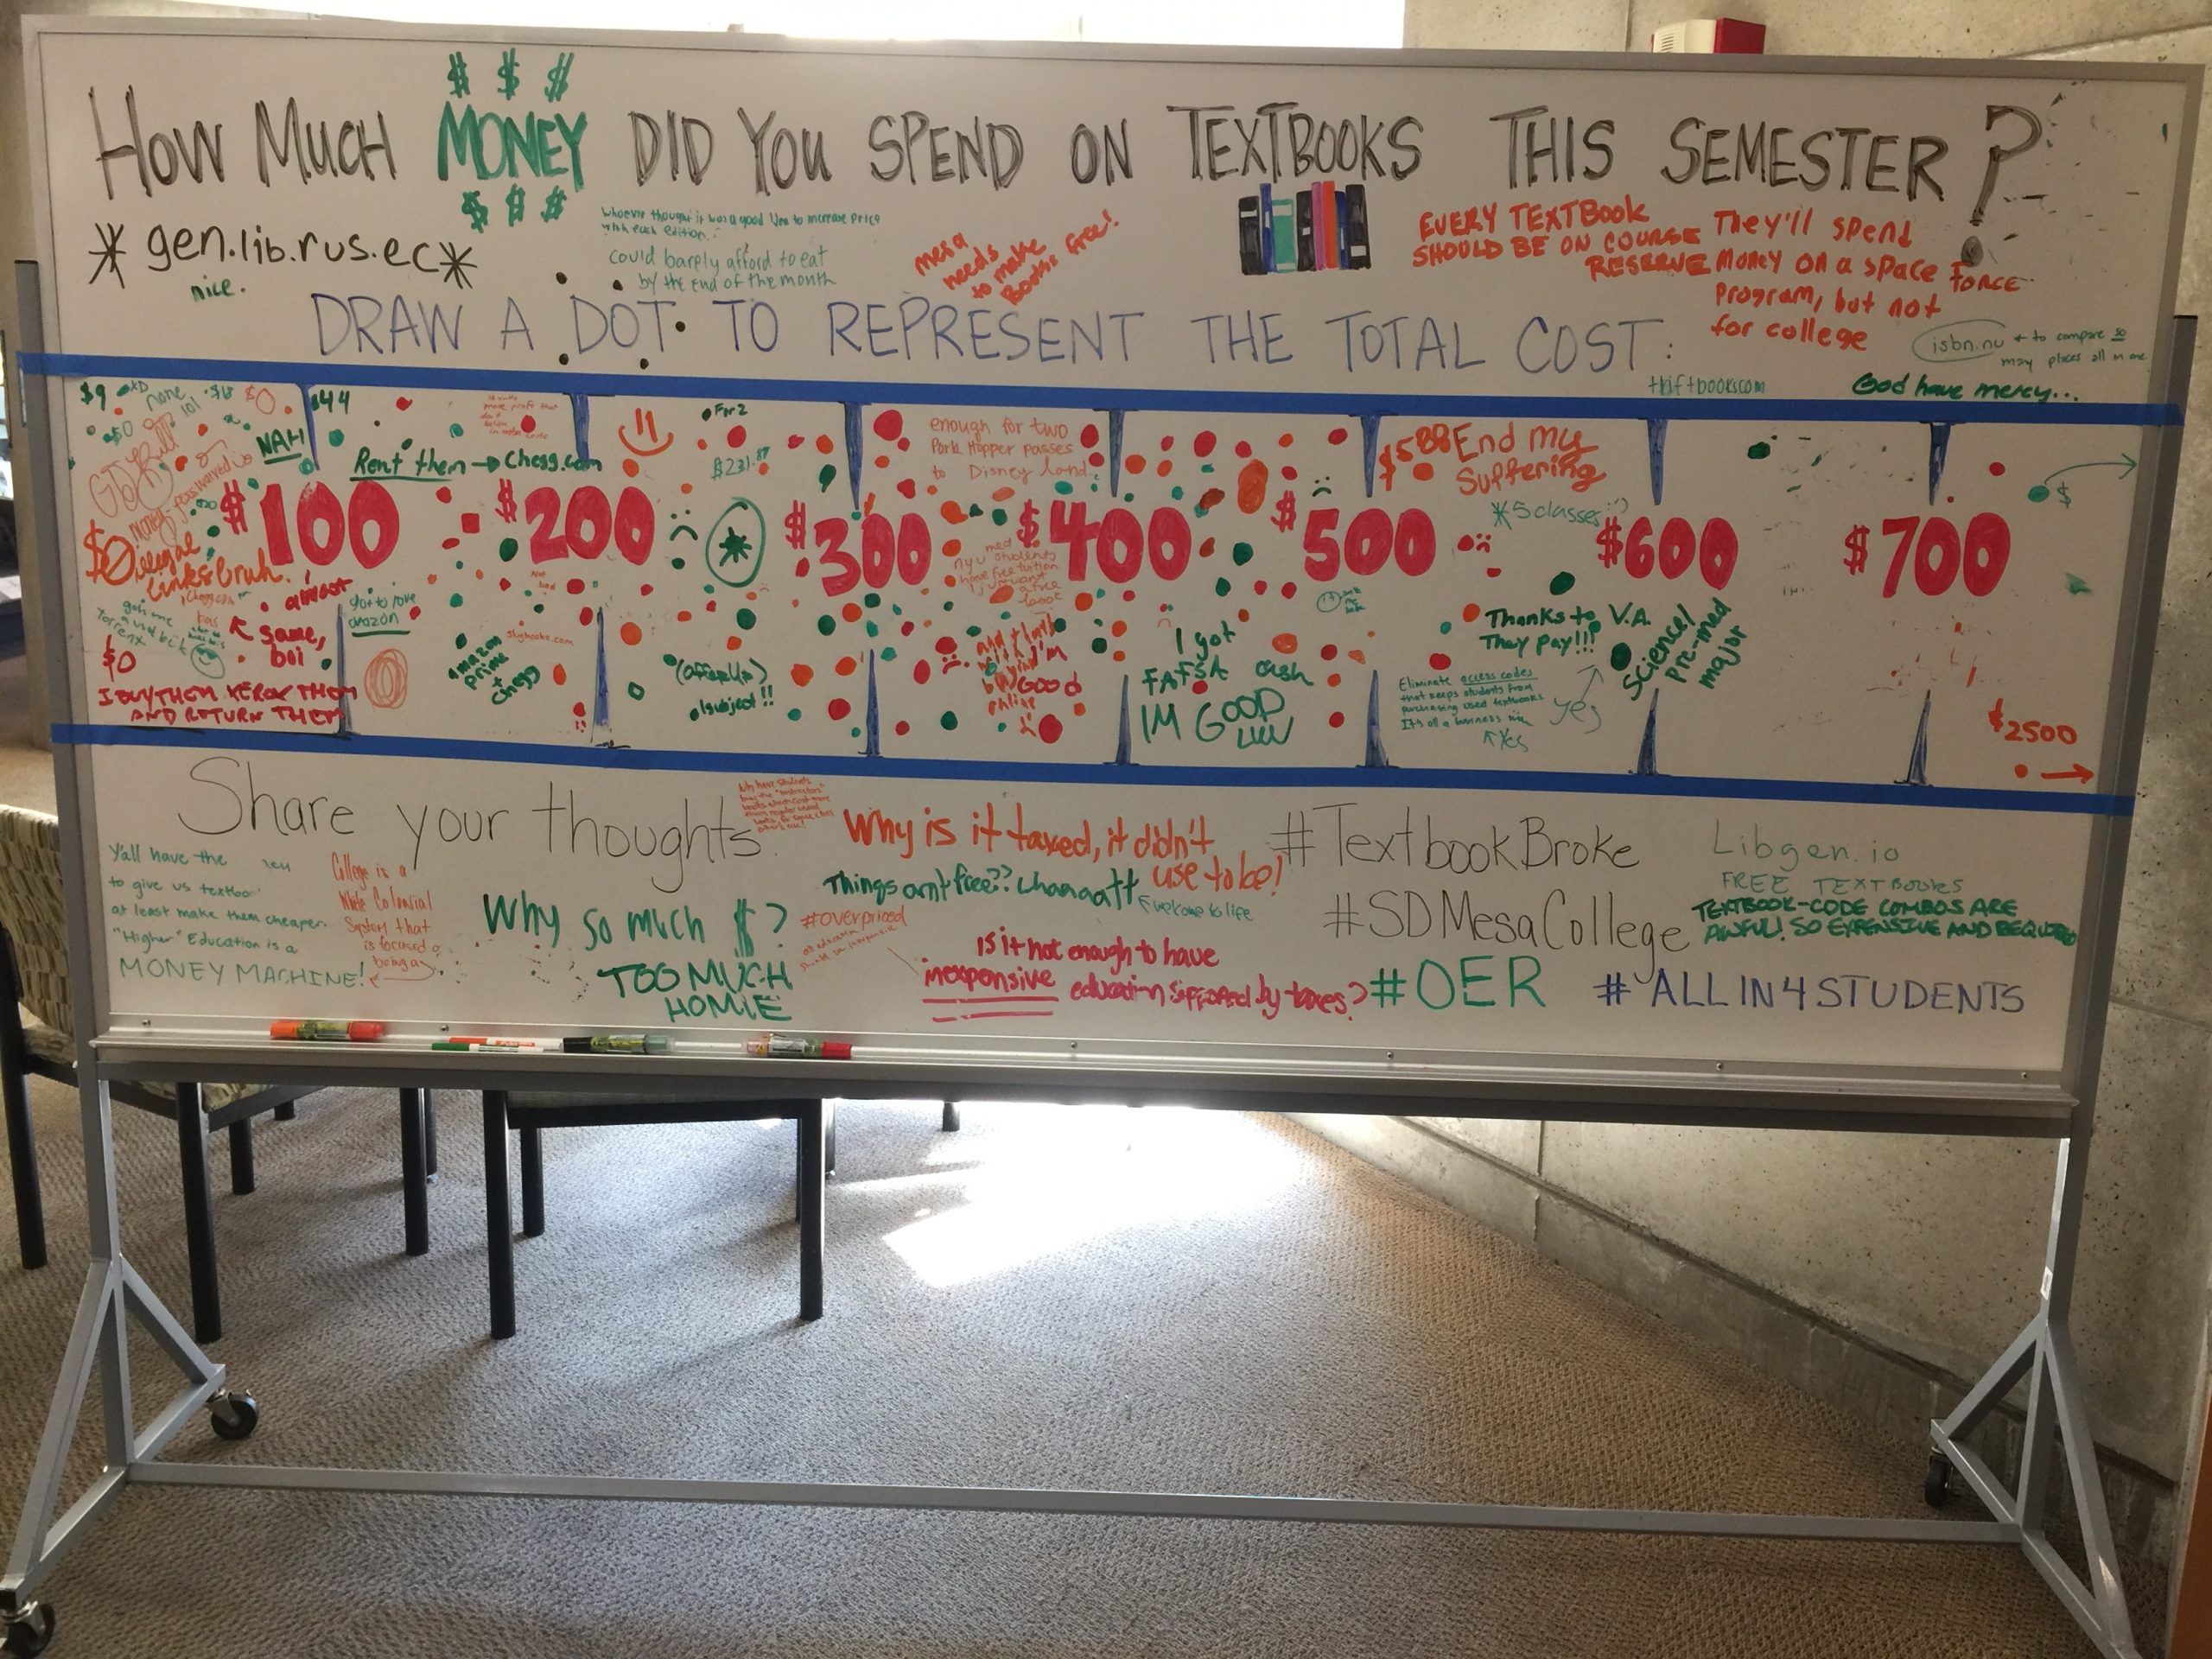 $ $ $
HOW MUCH MONEY DID YOU SPEND ON TEXTBOOKS THIS SEMESTER?
$ $ $
* gen.lib.rus.ec *
nice.
whoever thought it was a good idea to increase price
with each edition.
could barely afford to eat
by the end of the month
mesa
needs
to make
Books free!
EVERY TEXTBOOK
SHOULD BE ON COURSE
RESERVE
They'll spend
money on a space force
program, but not
for college
isbn.nu to compare so
many places all in one
DRAW A DOT TO REPRESENT THE TOTAL COST:
thriftbooks.com
God have mercy...
$9
XD
none
lol
$0
$0
NAH
$44
Rent them → Chegg.com
For 2
$231.87
enough for two
Park Hopper passes
to Disneyland.
$588
End my
suffering
*5 classes
$
$100
$200
$300
$400
$500
$600
$700
$0 illegal
links bruh.
almost
same,
boi
$0
I BUY THEM XEROX THEM
AND RETURN THEM
got to love
amazon
Not
bad
slugbooks.com
Amazon
prime
+
Chegg
*
(OfferUp)
1 subject!!
med
nyu students
have free tuition
GOOD
online
I got
FAFSA cash
IM GOOD
LUV
Thanks to V.A.
They pay!!!
Science/
Pre-med
major
Eliminate access codes
that keeps students from
purchasing used textbooks
It's all a business
Yes
Yes
$2500
Share your thoughts
Why have students
buy the "instructors"
books which cost more
Why is it taxed, it didn't
use to be!
Things arn't free?? Whaaaatt
Everyone to life
#TextbookBroke
#SDMesaCollege
#OER
#ALLIN4STUDENTS
Libgen.io
FREE TEXTBOOKS
TEXTBOOK-CODE COMBOS ARE
AWFUL! SO EXPENSIVE AND REQUIRED
Y'all have the
to give us textboo
at least make them cheaper.
"Higher" Education is a
MONEY MACHINE!
College is a
White Colonial
System that
is focused
being a
Why so much $?
TOO MUCH
HOMIE
#overpriced
Is it not enough to have
inexpensive education supported by taxes?